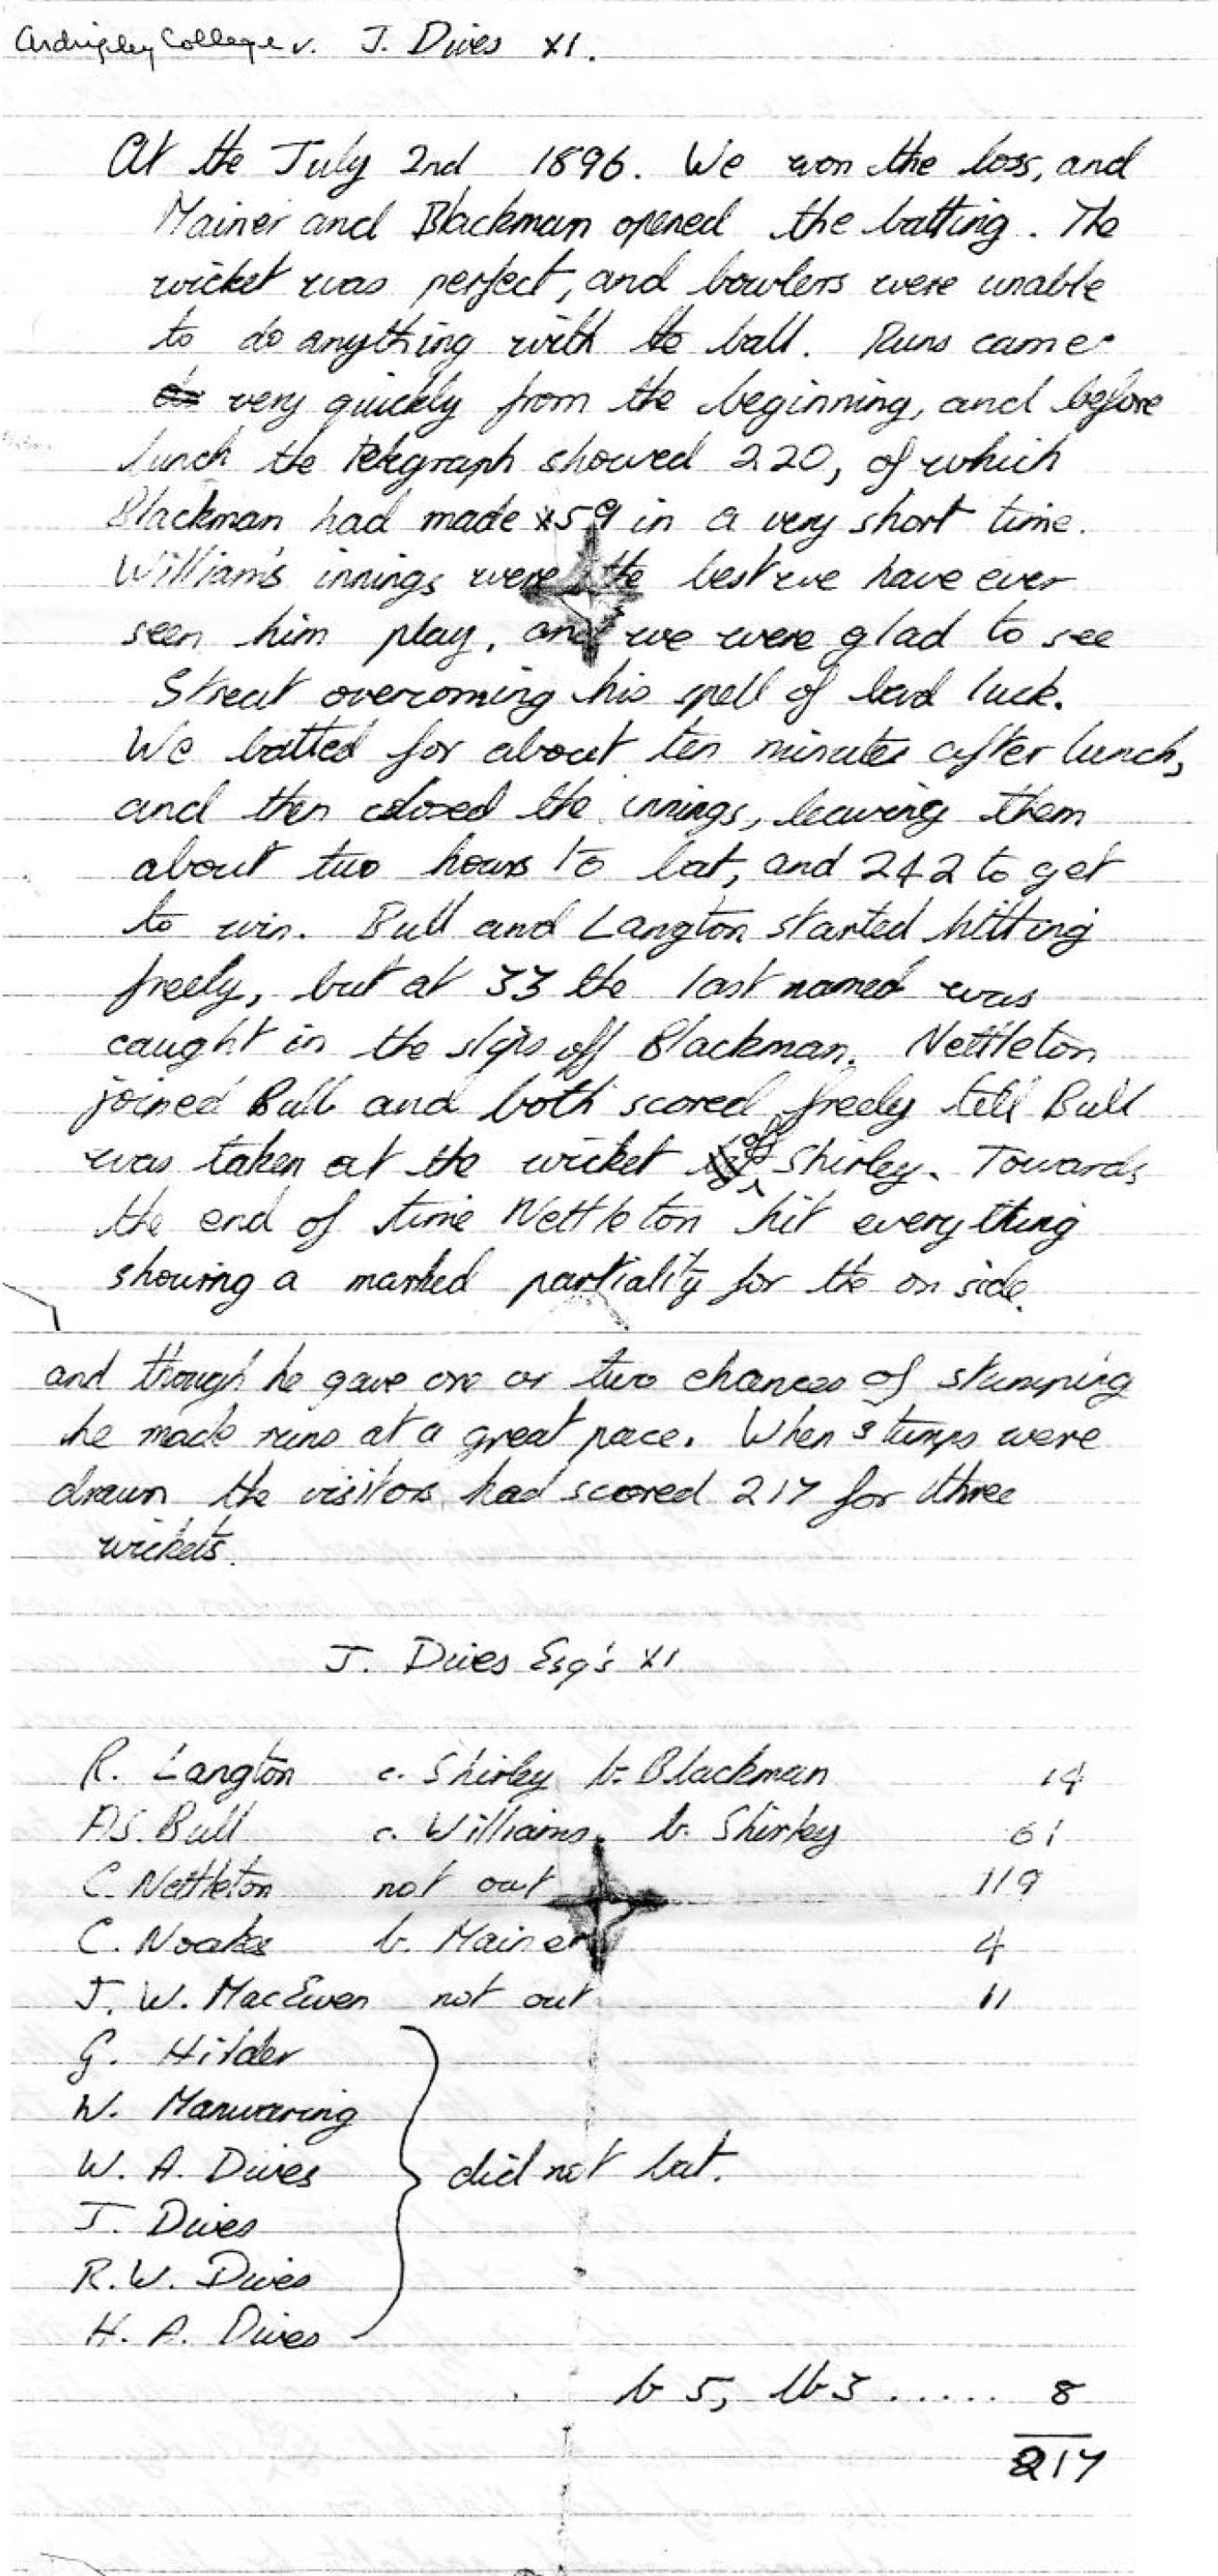 Ardingley College v. J. Dives XI.
At the July 2nd 1896. We won the loss, and
Mainer and Blackman opened the batting. The
wicket was perfect, and bowlers were unable
to do anything with the ball. Runs came
very quickly from the beginning, and before
lunch the telegraph showed 220, of which
Blackman had made *59 in a very short time.
William's innings were the best we have ever
seen him play, and we were glad to see
Streat overcoming his spell of bad luck.
We batted for about ten minutes after lunch,
and then closed the innings, leaving them
about two hours to bat, and 242 to get
to win. Bull and Langton started hitting
freely, but at 33 the last named was
caught in the slips off Blackman. Nettleton
joined Bull and both scored freely till Bull
was taken at the wicket off Shirley. Towards
the end of time Nettleton hit everything
showing a marked partiality for the on side.
and though he gave one or two chances of stumping
he made runs at a great pace. When stumps were
drawn the visitors had scored 217 for three
wickets.
J. Dives Esq's XI
R. Langton c. Shirley b. Blackman 14
A.S. Bull c. Williams b. Shirley 61
C. Nettleton not out 119
C. Noakes b. Mainer 4
J. W. MacEwen not out 11
G. Hilder
W. Manwaring
W. A. Dives did not bat.
J. Dives
R. W. Dives
H. A. Dives
b 5, lb 3 ..... 8
217